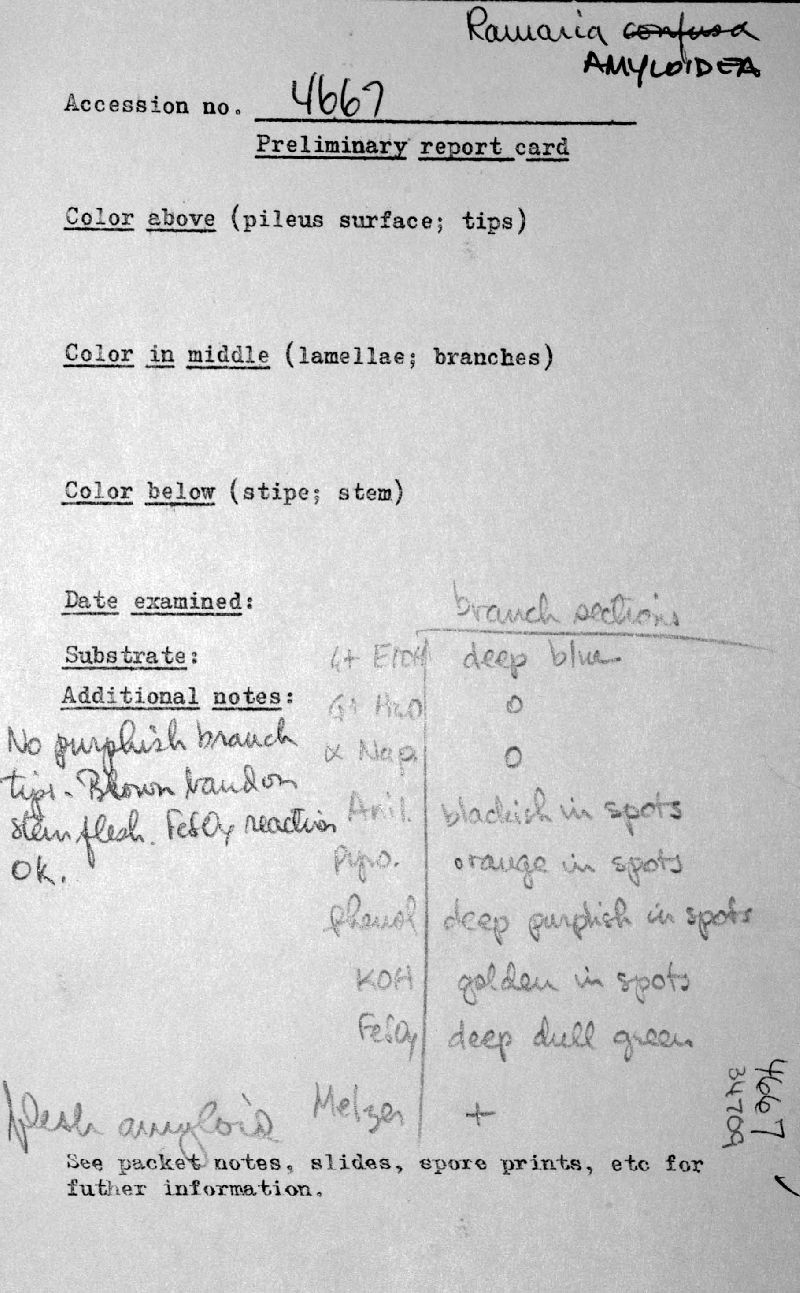 Ramaria confusa
AMYLOIDEA
Accession no. 4667
Preliminary report card
Color above (pileus surface; tips)
Color in middle (lamellae; branches)
Color below (stipe; stem)
Date examined:
branch sections
Substrate:
G+ EtOH deep blue
Additional notes:
G+ H2O 0
No purplish branch
α Nap. 0
tips. Brown band on
Anil. blackish in spots
stem flesh. FeSO4 reaction
OK.
Pyro. orange in spots
phenol deep purplish in spots
KOH golden in spots
FeSO4 deep dull green
flesh amyloid
Melzer +
4667
34709
See packet notes, slides, spore prints, etc for
futher information.